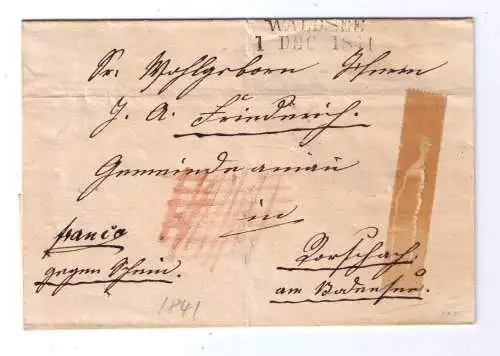 WALDSEE
1 DEC 1841
Sr. Wohlgeborn Herrn
J. A. Friedrich.
Gemeindeamman
in
franco
Rorschach
gegen Schein.
am Bodensee.
1841